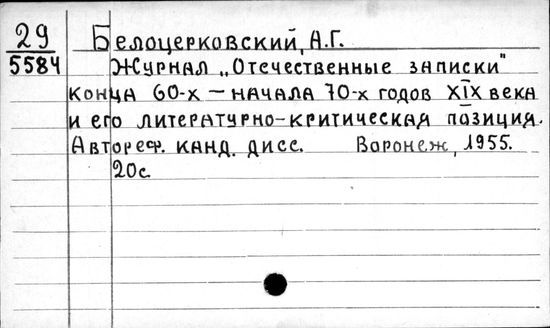 29 Белоцерковский, А.Г.
5584 Журнал „Отечественные записки"
конца 60-х — начала 70-х годов XIX века
и его литературно-критическая позиция.
Автореф. канд. дисс. Воронеж, 1955.
20с.